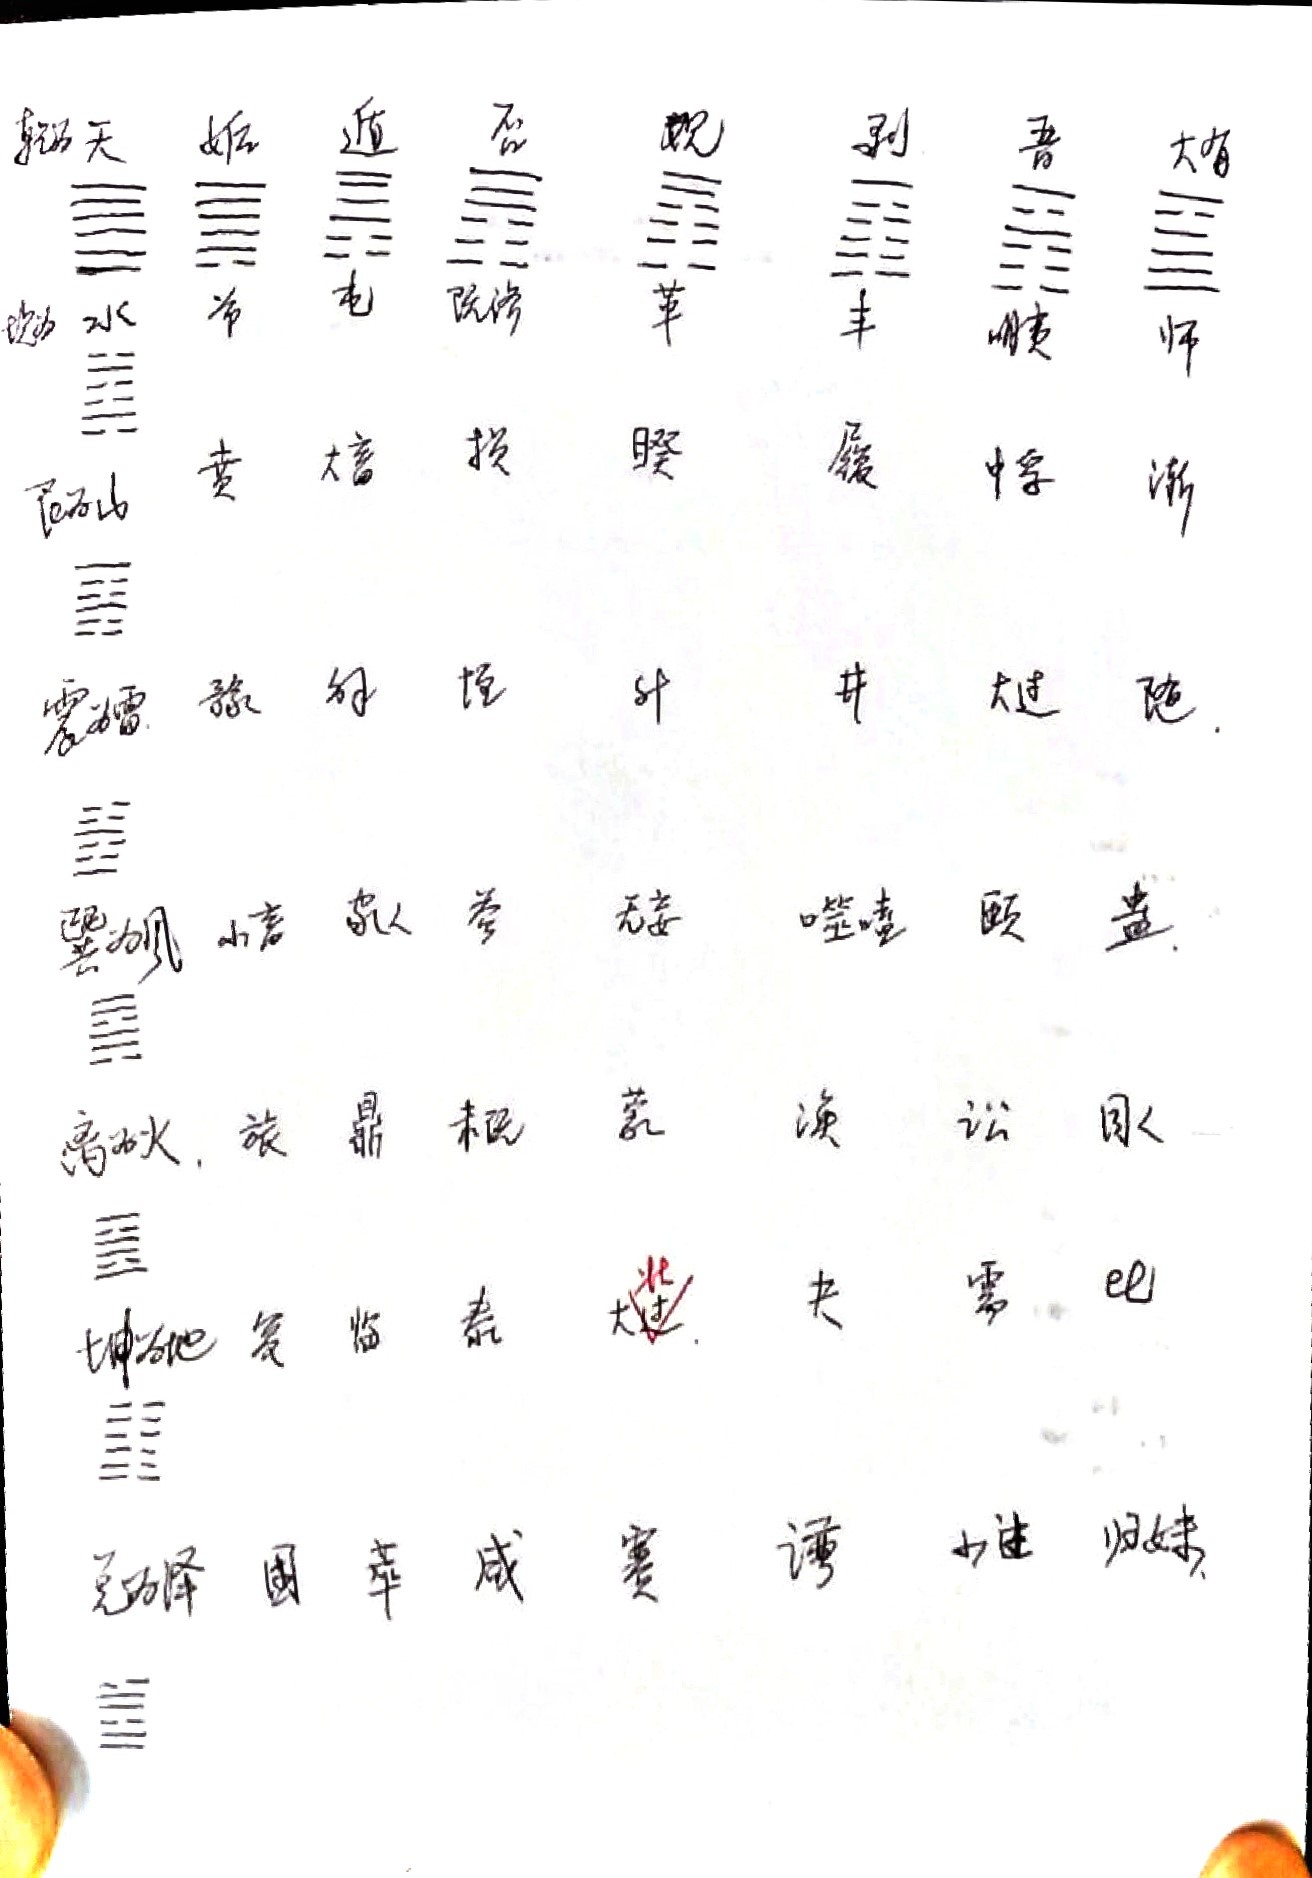 乾为天 姤 遁 否 观 剥 晋 大有
坎为水 节 屯 既济 革 丰 明夷 师
艮为山 贲 大畜 损 睽 履 中孚 渐
震为雷 豫 解 恒 升 井 大过 随
巽为风 小畜 家人 益 无妄 噬嗑 颐 蛊
离为火 旅 鼎 未既 蒙 涣 讼 同人
坤为地 复 临 泰 大过壮 夬 需 比
兑为泽 困 萃 咸 蹇 谦 小过 归妹